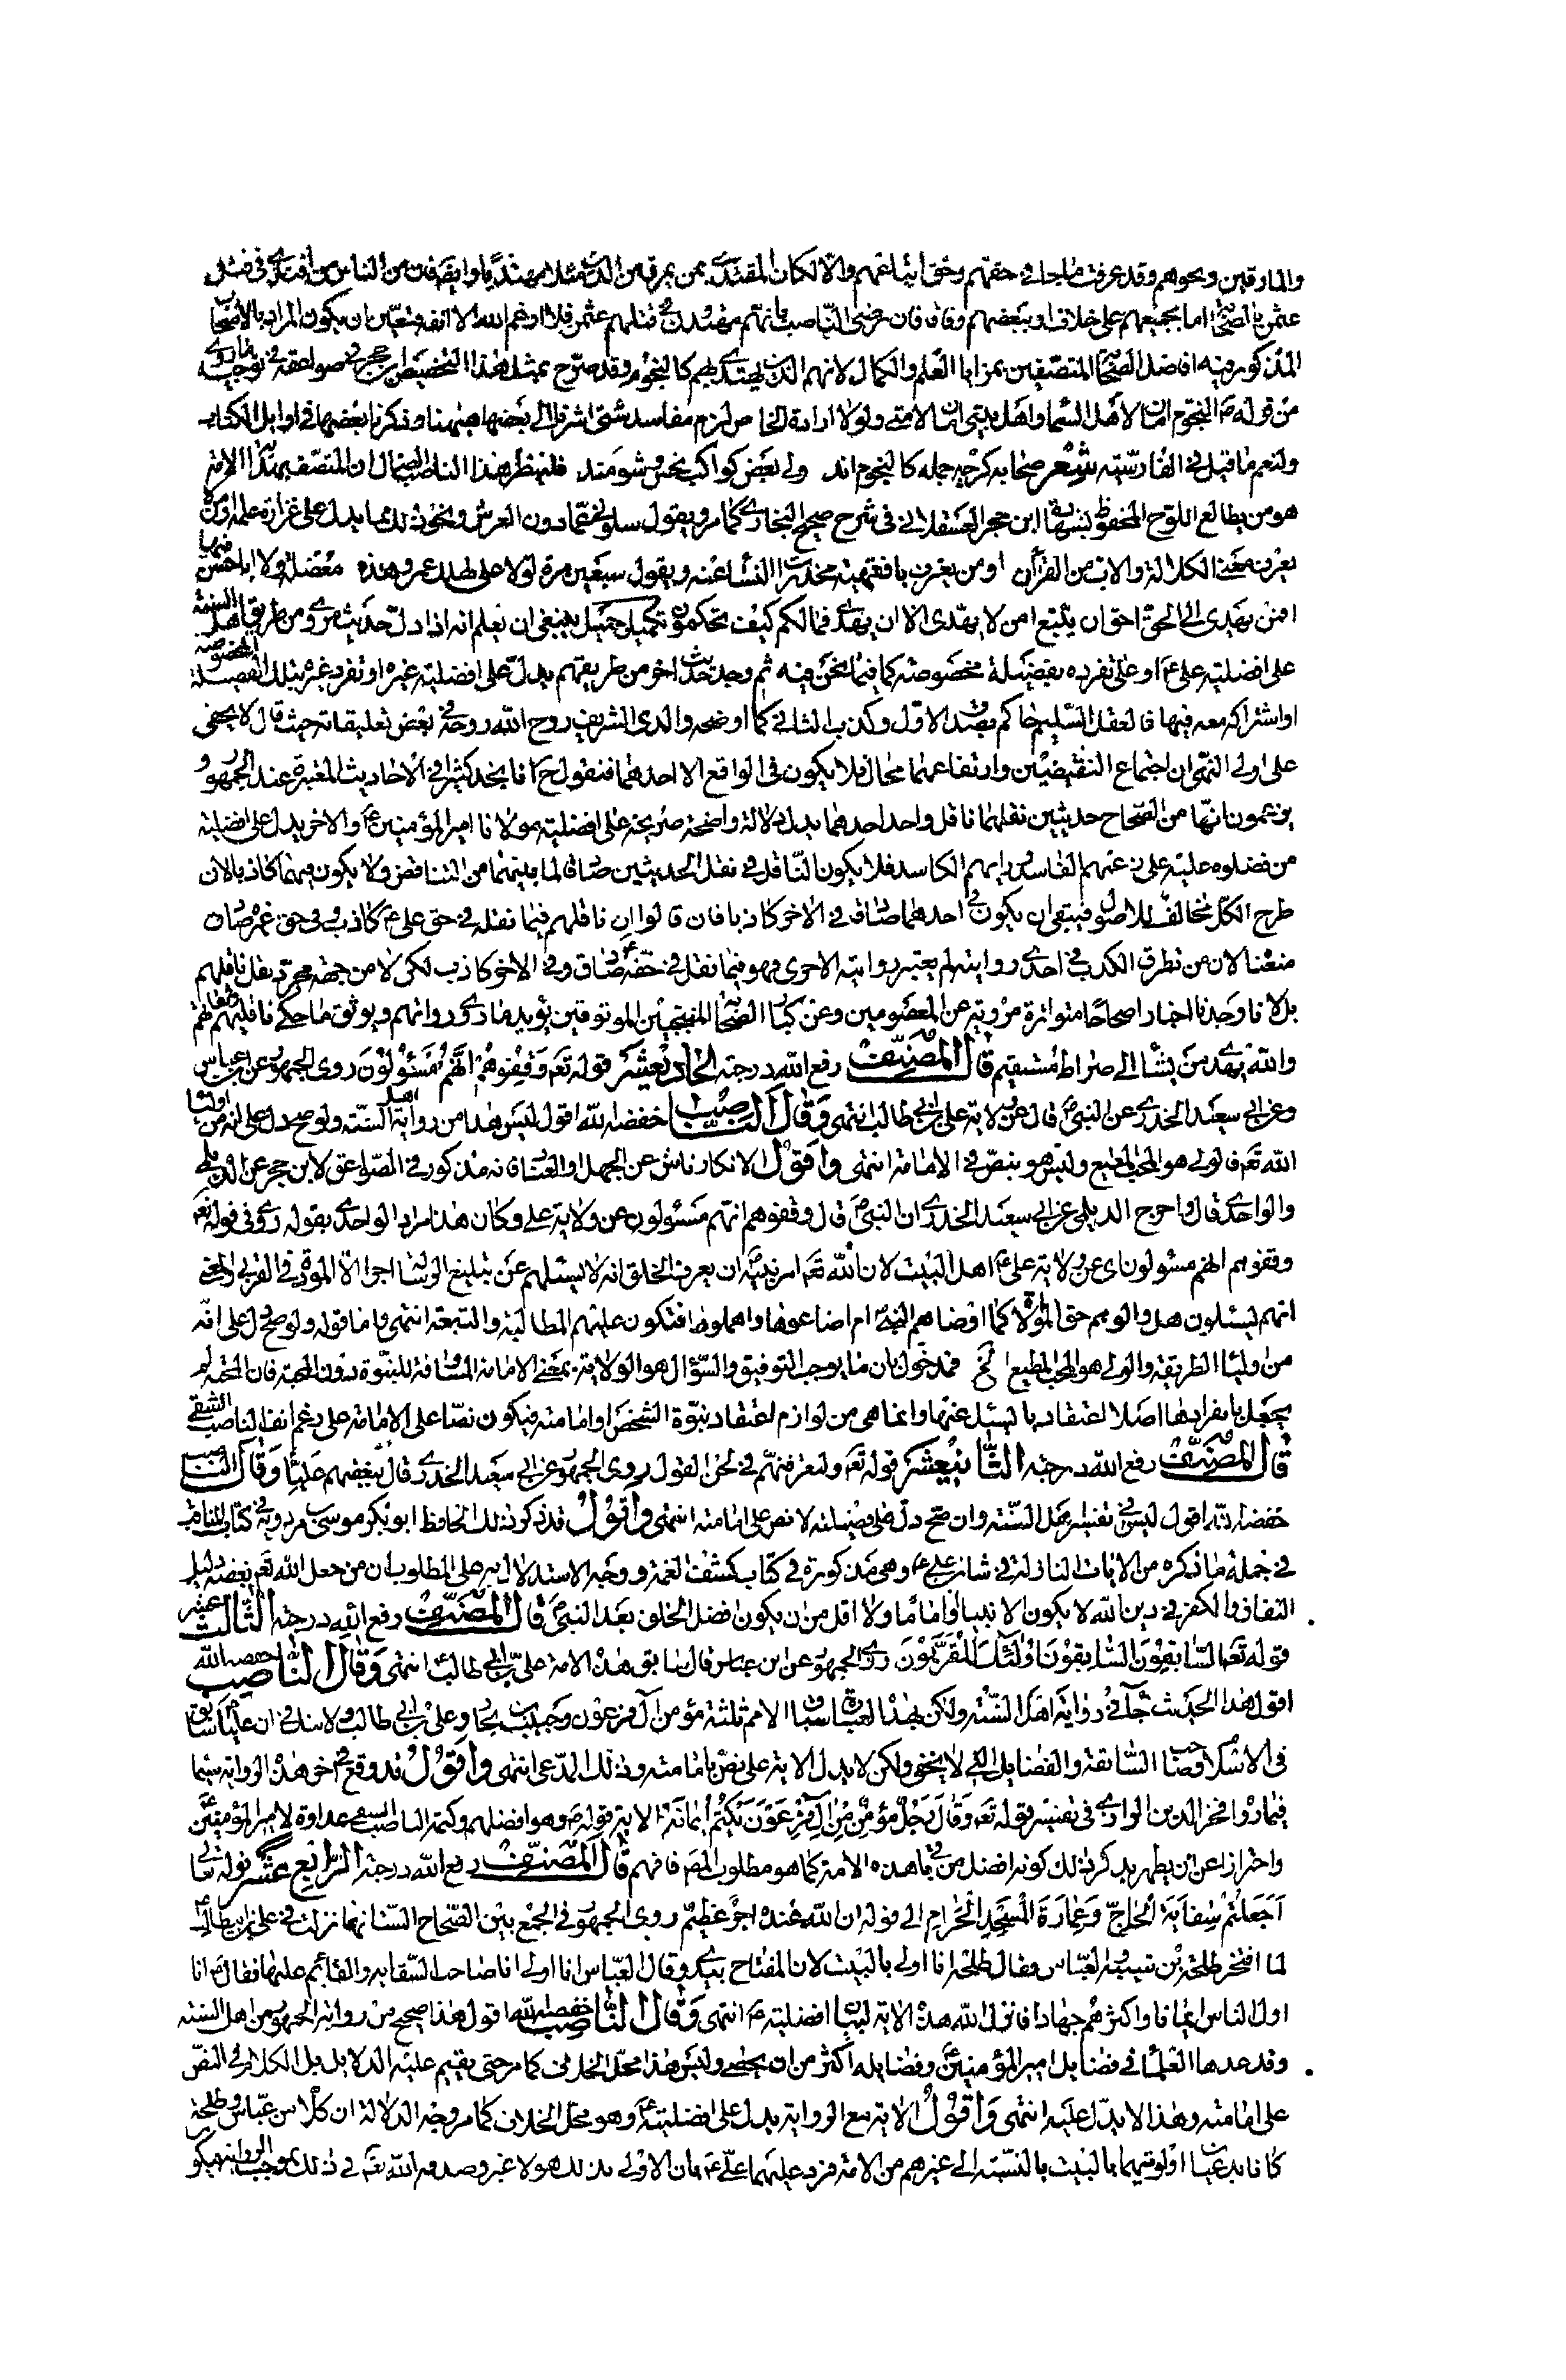 والمارقين ونحوهم وقد عرفت ما جاء في حقهم وحق اتباعهم والا لكان المقتدى بمن يمرق من الدين مثلا مهتديا وايضا فان من الناس من اقتدى في قتل
عثمن بالصحابة اما بجميعهم على خلاف او ببعضهم وفاقا فان رضى الناصب بانهم مهتدون في قتلهم عثمن فلا ارغم الله الا انفه فتعين ان يكون المراد بالاصحاب
المذكور فيه افاضل الصحابة المتصفين بمزايا العلم والكمال لانهم الذين يهتدى بهم كالنجوم وقد صرح بمثل هذا التخصيص ابن حجر في صواعقه في توجيه ما روى
من قوله ص النجوم امان لاهل السماء واهل بيتي امان لامتي ولولا ارادة الخاص لزم مفاسد شتى اشرنا الى بعضها هيهنا وذكرنا بعضها في اوايل الكتاب
ولنعم ما قيل في الفارسية شعر صحابه كرچه جمله كالنجوم اند ولى بعض كواكب نحس وشومند فلينظر هذا الناصب الضال ان المتصف بهذا الامر
هو من يطالع اللوح المحفوظ بشهادة ابن حجر العسقلاني في شرح صحيح البخارى كما مر ويقول سلوني عما دون العرش ونحو ذلك مما يدل على غزارة علمه او من لا
يعرف معنى الكلالة والاب من القرآن او من يعترف بافقهية مخدرات النساء عنه ويقول سبعين مرة لولا على لهلك عمر وهذه معضلة ولا ابا حسن فيها
افمن يهدى الى الحق احق ان يتبع امن لا يهدى الا ان يهدى فما لكم كيف تحكمون تكميل جميل ينبغى ان يعلم انه اذا دل حديث مروى من طريق اهل السنة
على افضلية على ع او على تفرده بفضيلة مخصوصة كما فيما نحن فيه ثم وجد حديث اخر من طريقهم يدل على افضلية غيره او تفرد غيره بتلك الفضيلة المخصوصة
او اشتراكه معه فيها فالعقل السليم حاكم بصدق الاول وكذب الثاني كما اوضحه والدى الشريف روح الله روحه في بعض تعليقاته حيث قال لا يخفى
على اولى النهى ان اجتماع النقيضين وارتفاعهما محال فلا يكون في الواقع الا احدهما فنقول ح انا نجد كثيرا في الاحاديث المعتبرة عند الجمهور و
يزعمون انها من الصحاح حديثين نقلهما ناقل واحد احدهما يدل دلالة واضحة صريحة على افضلية مولانا امير المؤمنين ع والاخر يدل على افضلية
من فضلوه عليه على زعمهم الفاسد ورايهم الكاسد فلا يكون الناقل في نقل الحديثين صادقا لما بينهما من التناقض ولا يكون فيهما كاذبا لان
طرح الكل مخالف للاصول فبقى ان يكون في احدهما صادقا في الاخر كاذبا فان قالوا ان ناقلهم فيما نقله في حق على ع كاذب وفي حق غيره صادق
منعنا لان من تطرق الكذب في احدى روايته لم يعتبر روايته الاخرى فهو فيما نقل في حقه ع صادق وفي الاخر كاذب لكن لا من جهة مجرد نقل ناقلهم
بل لانا وجدنا اخبارا صحاحا متواترة مروية عن المعصومين وعن كبار الصحابة المنتجبين الموثوقين يؤيد ما ذكره رواتهم ويوثق ما حكى ناقليهم وثقاتهم
والله يهدى من يشاء الى صراط مستقيم قال المصنف رفع الله درجته الحادية عشر قوله تعه وقفوهم انهم مسئولون روى الجمهور عن ابن عباس
وعن ابى سعيد الخدرى عن النبى ص قال عن ولاية على بن ابى طالب انتهى وقال الناصب خفضه الله اقول ليس هذا من رواية اهل السنة ولو صح دل على انه من اولياء
الله تعه فالولى هو المحب المطيع وليس هو بنص في الامامة انتهى واقول الانكار ناش عن الجهل او العناد فانه مذكور في الصواعق لابن حجر عن الديلمى
والواحدى قال واخرج الديلمى عن ابى سعيد الخدرى ان النبى ص قال وقفوهم انهم مسئولون عن ولاية على وكان هذا مراد الواحدى بقوله روى في قوله تعه
وقفوهم انهم مسئولون اى عن ولاية على ع اهل البيت لان الله تعه امر نبيه ان يعرف الخلق انه لا يسئلهم عن تبليغ الرسالة اجرا الا المودة في القربى والمعنى
انهم ليسئلون هل والوهم حق الموالاة كما اوصاهم النبى ص ام اضاعوها واهملوها فتكون عليهم المطالبة والتبعة انتهى واما قوله ولو صح دل على انه
من اولياء الطريقة والولى هو المحب المطيع الخ فمدخول بان ما يوجب التوقيف والسؤال هو الولاية بمعنى الامامة المساوقة للنبوة دون المحبة فان المحبة لم
يجعل بانفرادها اصلا اعتقاديا ليسئل عنها وانما هى من لوازم اعتقاد نبوة الشخص او امامته فيكون نصا على الامامة على رغم انف الناصب الشقى
قال المصنف رفع الله درجته الثانية عشر قوله تعه ولتعرفنهم في لحن القول روى الجمهور عن ابى سعيد الخدرى قال ببغضهم عليا وقال الناصب
خفضه الله اقول ليس في تفسير اهل السنة وان صح دل على فضيلته لا نص على امامته انتهى واقول قد ذكر ذلك الحافظ ابو بكر موسى بن مردويه في كتاب المناقب
في جملة ما ذكره من الايات النازلة في شان على ع وهى مذكورة في كتاب كشف الغمة ووجه الاستدلال به على المطلوب ان من جعل الله تعه بغضه دليل
النفاق والكفر في دين الله لا يكون الا نبيا او اماما ولا اقل من ان يكون افضل الخلق بعد النبى ص قال المصنف رفع الله درجته الثالث عشر
قوله تعه السابقون السابقون اولئك المقربون روى الجمهور عن ابن عباس قال سابق هذه الامة على بن ابى طالب انتهى وقال الناصب خفضه الله
اقول هذا الحديث جاء في رواية اهل السنة ولكن بهذه العبارة سباق الامم ثلثة مؤمن آل فرعون وحبيب النجار وعلى بن ابى طالب ولا شك في ان عليا سابق
في الاسلام وصاحب السابقة والفضايل التى لا يخفى ولكن لا يدل الاية على نص بامامته وذلك المدعى انتهى واقول قد وقع في اخر هذه الرواية سيما
فيما رواه فخر الدين الرازى في تفسير قوله تعه وقال رجل مؤمن من آل فرعون يكتم ايمانه الاية قوله ص وهو افضلهم وكتمه الناصب الشقى عداوة لامير المؤمنين ع
واحترازا عن ان يظهر بذكر ذلك كونه افضل من في هذه الامة كما هو مطلوب المصنف فافهم قال المصنف رفع الله درجته الرابع عشر قوله تعالى
اجعلتم سقاية الحاج وعمارة المسجد الحرام الى قوله ان الله عنده اجر عظيم روى الجمهور في الجمع بين الصحاح الستة انها نزلت في على بن ابيطالب ع
لما افتخر طلحة بن شيبة والعباس فقال طلحة انا اولى بالبيت لان المفتاح بيدى وقال العباس انا اولى انا صاحب السقاية والقايم عليها فقال ع انا
اول الناس ايمانا واكثرهم جهادا فانزل الله هذه الاية لبيان افضليته ع انتهى وقال الناصب خفضه الله اقول هذا صحيح من رواية الجمهور من اهل السنة
وقد عدها العلماء في فضايل امير المؤمنين ع وفضايله اكثر من ان يحصى وليس هذا محل الخلاف كما مر حتى يقيم عليه الدلايل بل الكلام في النص
على امامته وهذا لا يدل عليه انتهى واقول الاية مع الرواية يدل على افضليته ع وهو محل الخلاف كما مر وجه الدلالة ان كلا من عباس وطلحة
كانا يدعيان اولويتهما بالبيت بالنسبة الى غيرهم من الامة فرد عليهما على ع بان الاولى بذلك هو لا غير وصدقه الله تعه في ذلك بموجب الرواية فيكون